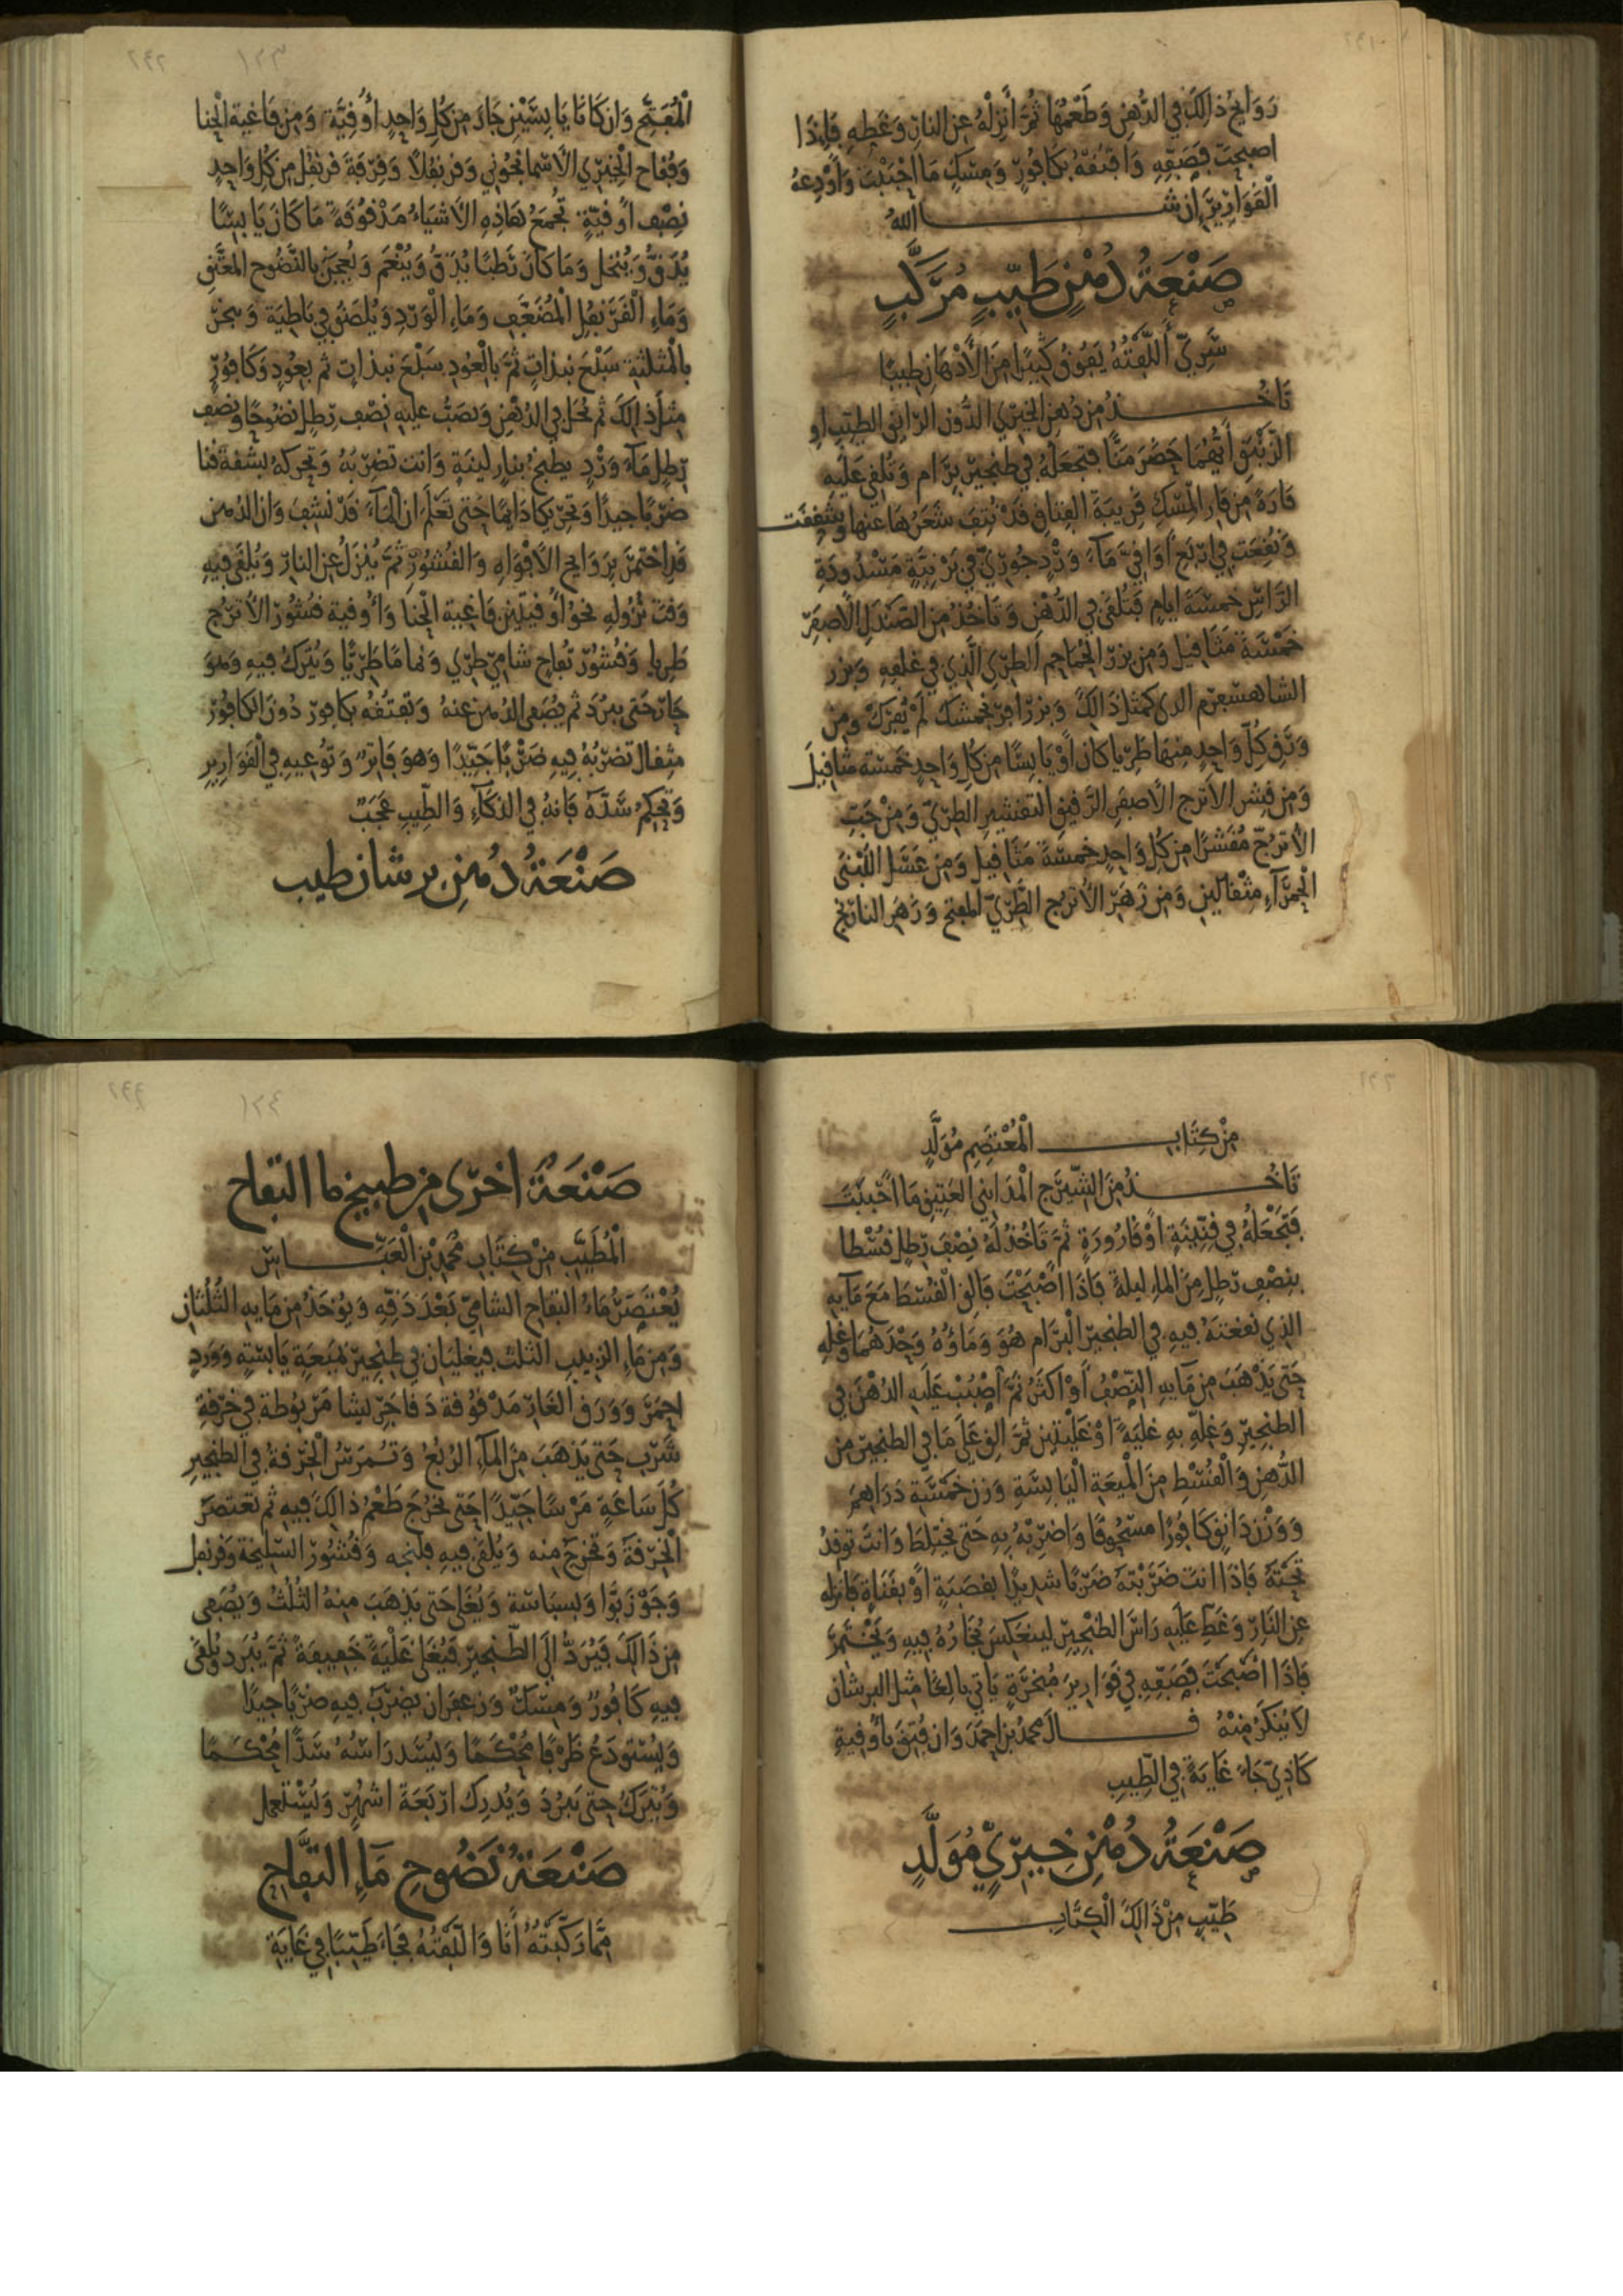 رَوَايحُ ذالِكَ في الدُّهنِ وَطَعْمُهَا ثُمَّ أَنزِلْهُ عنِ النارِ وَغَطِّهِ فَإِذَا
اصبحتَ فَصَفِّهِ وَافتُقهُ بكَافُورٍ وَمِسْكٍ مَا احْبَبْتَ وَأَوْدِعهُ
الْقَوَارِيرَ إن شــا اللهُ
صَنْعَةُ دُهْنٍ طَيِّبٍ مُرَكَّبٍ
سَرِيّ أَلَّفْتُهُ يَفُوقُ كَثِيرًا مِنَ الأَدْهَانِ طيبًا
تَاخُــذُ مِن دُهنِ الخِيرِي الدُّونِ الرَّابِقِ الطيّبِ او
الزَّنْبَقِ أَيُّهُمَا حَضَرَ مَنًّا فتجعَلُهُ في طنجيرِ بِرَامٍ وَتُلْقِي عَلَيهِ
فَارَةً مِن فَارِ المِسْكِ قَرِيبَةَ الفتاقِ قَدْ نُتِفَ شَعَرُهَا عنها وشُقِّقَت
وَنُقِعَت في ارْبَعِ أَوَاقِيَّ مَآءِ وَرْدٍ جُورِيٍّ في بَرْنِيَّةٍ مَسْدُودَةِ
الرَّاسِ خمسَةَ ايامٍ فَتُلقَى في الدُّهْنِ وَتَاخُذُ مِنَ الصَّنْدَلِ الأَصفَرِ
خَمْسَةَ مَثَاقيل وَمِن بزرِ الحَمَاحِمِ الطرِي الَّذِي في غلفِهِ وَبزر
الشاهسفرم الذى كمثل ذَالِكَ وَبزر افرنجمشك لَمْ يُفرَكْ وَمِن
وَرَقِ كُلِّ وَاحِدٍ مِنهَا طَرِيًا كانَ أَوْ يَابِسًا مِن كُلِّ وَاحِدٍ خَمسَةَ مثاقيلَ
وَمِن قِشرِ الأترج الأصفَرِ الرَّقيقِ التقشيرِ الطَرِيّ وَمِنْ حَبِّ
الأترُجّ مُقَشَّرًا مِن كُلِّ وَاحِدٍ خمسَةَ مَثَاقيل وَمِن عَسَلِ اللُّبْنَى
الحَمْرَآءِ مِثْقَالَينِ وَمِن زَهَرِ الأترُجِ الطَّرِيّ المفتح وَزَهَر النارَنجِ
الْمُفَتَّحِ وَان كَانَا يَابِسَيْنِ جَازَ مِن كُلِ وَاحِدٍ أُوقِيَّة وَمِن فَاغِيةِ الْحِنا
وَفُقاحِ الْخِيرِي الاسْمَانْجُونِي وَقرنفُلاً وَقِرْفةَ قرنفُل مِن كُلِ وَاحِدٍ
نِصْف اوقيّةٍ تُجْمَعُ هَاذِهِ الأشيَاءُ مَدْقُوقَةً مَا كَانَ يَابِسًا
يُدَقُّ وَيُنخل وَمَا كَانَ رَطبًا يُدَقُّ وَيُنْعَم وَيُعجَنُ بالنَّضُوح المعتَّقِ
وَمَاءِ الْقَرَنفُلِ الْمُضَعَّفِ وَمَاءِ الْوَردِ وَيُلصَقُ في بَاطِيَةٍ وَيبخر
بالمثلثَةِ سَبْعَ نبذَاتٍ ثُمَّ بالْعُودِ سَبْعَ نبذاتٍ ثم بعُودٍ وَكَافُورٍ
مِثلَ ذالِكَ ثم تحَلّ في الدُّهْنِ وَيصَبُّ عليهِ نِصْف رِطلٍ نضُوحًا وَنِصْف
رِطلٍ مَآءَ وَرْدٍ يطبخُ بنارٍ لينَةٍ وَانت تَضرِبُهُ وَتحركه بشقةِ قنا
ضَرْبًا جيدًا وَتحرِيكا دَايِمًا حَتى تَعْلَمَ ان المَآءَ قَدْ نشِفَ وَان الدُهن
قَد اختمَرَ برَوَايحِ الأفْوَاهِ وَالقُشُورِ ثُمَّ يُنْزَلُ عن النارِ وَيُلقَى فيهِ
وَقتَ نُزُولهِ نحوُ أوقيتَينِ فَاغِية الحنا وَأُوقية قشُورَ الأترُج
طَرِيا وَقُشُورَ تُفاح شَامِيٍ طَرِي وَنَماما طَرِيًّا وَيُترَكُ فيهِ وَهوَ
حَارٌ حَتى يبرُدَ ثم يُصَفى الدُهن عَنهُ وَتَفتُقُهُ بكافورٍ دُونَ الكافُورِ
مثقال تضرِبُهُ فِيهِ ضَرْبًا جَيِّدًا وَهوَ فَاتِرٌ وَتُوعِيهِ في الْقَوَارِيرِ
وَتحكِمُ سَدَّهُ فَانهُ في الذكَآءِ وَالطِّيبِ عَجَبٌ
صَنْعَةُ دُهنِ برشان طيب
مِنْ كِتَابِــ الْمُعْتَصِمِ مُوَلَّدٍ
تَاخُــذُ مِنَ الشِّيرَجِ الْمَدَايِنِي العَتِيقِ مَا احْبَبْتَ
فَتَجْعَلُهُ في قِنِّينَةٍ اوْ قَارُورَةٍ ثُمَّ تَاخُذُ لَهُ نِصْفَ رِطلٍ قُسْطا
بنصْفِ رِطلٍ مِنَ الماءِ ليلةً فَاذَا اصْبَحْتَ فَالقِ الْقُسْطَ مَعَ مَآيهِ
الذِي نَقعْتَهُ فِيهِ في الطنجيرِ البرَام هُوَ وَمَاؤُهُ وَحْدَهُمَا وَغلِهِ
حَتَّى يَذْهَبَ مِن مَآيهِ النِّصْفُ أَوْ اكثَرُ ثُمَّ اصْبُبْ عَلَيهِ الدُهْنَ في
الطنجِيرِ وَغلِّهِ بِهِ غليَةً أَوْ غَلْيَتَينِ ثمَّ القِ عَلَى مَا في الطنجيرِ مِن
الدُّهنِ وَالْقُسْطِ مِنَ الْمَيعَةِ الْيَابِسَةِ وَزن خَمْسَةِ دَرَاهِمَ
وَوَزْن دَانِقٍ كَافُورًا مسحُوقًا وَاضْرِبْهُ بهِ حَتى يختلِطَ وَانتَ توقدُ
تَحْتَهُ فَاذَا انتَ ضَرَبْتَهُ ضَرْبًا شديدًا بقصَبَةٍ اوْ بقَنَاةٍ فَانزله
عنِ النَارِ وَغَطِّ عَلَيهِ رَاسَ الطنْجِيرِ لينعَكسَ بُخَارُهُ فيهِ وَيَخْتَمِرَ
فَاذَا اصْبَحْتَ فَصَفّهِ في قَوَارِيرَ مُبَخرَةٍ يَاتي بالِغًا مثل البرشان
لا يُنكَرُ مِنْهُ قــالَ محمدُ بن احمَدَ وَان فُتِقَ بأُوقيةِ
كَاذِيٍ جَاءَ غَايَةً في الطِّيبِ
صَنْعَةُ دُهْنِ خِيرِيٍّ مُوَلَّدٍ
طَيِّبٍ مِنْ ذَالِكَ الْكِتَابِــ
صَنْعَةٌ اخْرَى مِن طبيخ ما التفاح
الْمُطَيَّبِ مِنْ كِتَابِ مُحَمدِ بْنِ الْعَبَّــاسِ
يُعْتَصَرُ مَاءُ التفاحِ الشامِيِّ بَعْدَ دَقِهِ وَيُوخَذُ مِن مَايهِ الثُلُثانِ
وَمِن مَاءِ الزبيبِ الثُلث فيغليَان في طِنجيرٍ بمَيعَةٍ يَابسَةٍ وَوَردٍ
احمَرَ وَوَرَقِ الغَارِ مَدْقُوقةً دقا جَرِيشا مَرْبُوطة في خرْقةِ
شَرْبٍ حَتى يَذهَبَ مِنَ المَآءِ الرُبعُ وَتُمرَسُ الْخِرْقةُ في الطنجيرِ
كُلَّ سَاعَةٍ مَرْسًا جَيِّدًا حَتى تَخرُجَ طَعْمُ ذالِكَ فيهِ ثم تُعْتصَرَ
الْخِرقةُ وَتخرَجَ منهُ وَيُلقَى فيهِ فلنجه وَقُشُورُ السّلِيخَة وَقرنفل
وَجَوْزَ بَوَّا وَبسبَاسَة وَيُغلَى حَتى يَذهَبَ مِنهُ الثُلُثُ وَيُصَفى
مِن ذَالِكَ فَيُرَدُّ الَى الطّنجيرِ فَيُغلى غَلْيَةً خَفيفَةً ثُمَّ يُبرَد وَيُلقَى
فيهِ كَافُورٌ وَمِسْكٌ وَزعفَران يضرَبُ فيهِ ضَرْبًا جيدًا
وَيُسْتَودَعُ ظَرْفًا مُحْكَمًا وَيُسَد رَاسُهُ سَدًّا مُحْكَمًا
وَيُترَكُ حَتى يَبرُدَ وَيُدرِك ارْبَعَةَ اشهُرٍ وَيُسْتَعمل
صَنْعَةُ نَضُوحِ مَآءِ التفَّاحِ
مِمَّا رَكَّبْتُهُ أَنَا وَالَّفْتُهُ فَجَاءَ طَيِّبًا في غَايَةِ